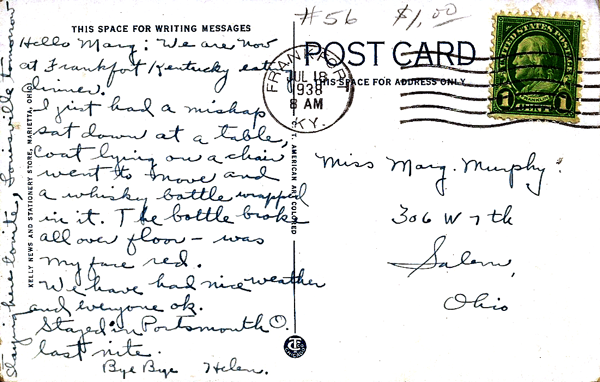 #56 $1.00
THIS SPACE FOR WRITING MESSAGES
POST CARD
THIS SPACE FOR ADDRESS ONLY
UNITED STATES POSTAGE
1 1
FRANKFORT
JUL 18
8 AM
1938
KY.
Hello Mary: We are now
at Frankfort Kentucky eating
dinner.
I just had a mishap
sat down at a table,
coat lying on a chair
went to move and
a whisky bottle wrapped
in it. The bottle broke
all over floor – was
my face red.
We have had nice weather
and everyone ok.
Stayed in Portsmouth O.
last nite.
Bye Bye Helen.
Staying here tonite, Louisville tomorrow
KELLY NEWS AND STATIONERY STORE, MARIETTA, OHIO
C.T. AMERICAN ART COLORED
Miss Mary Murphy
306 W 7th
Salem,
Ohio